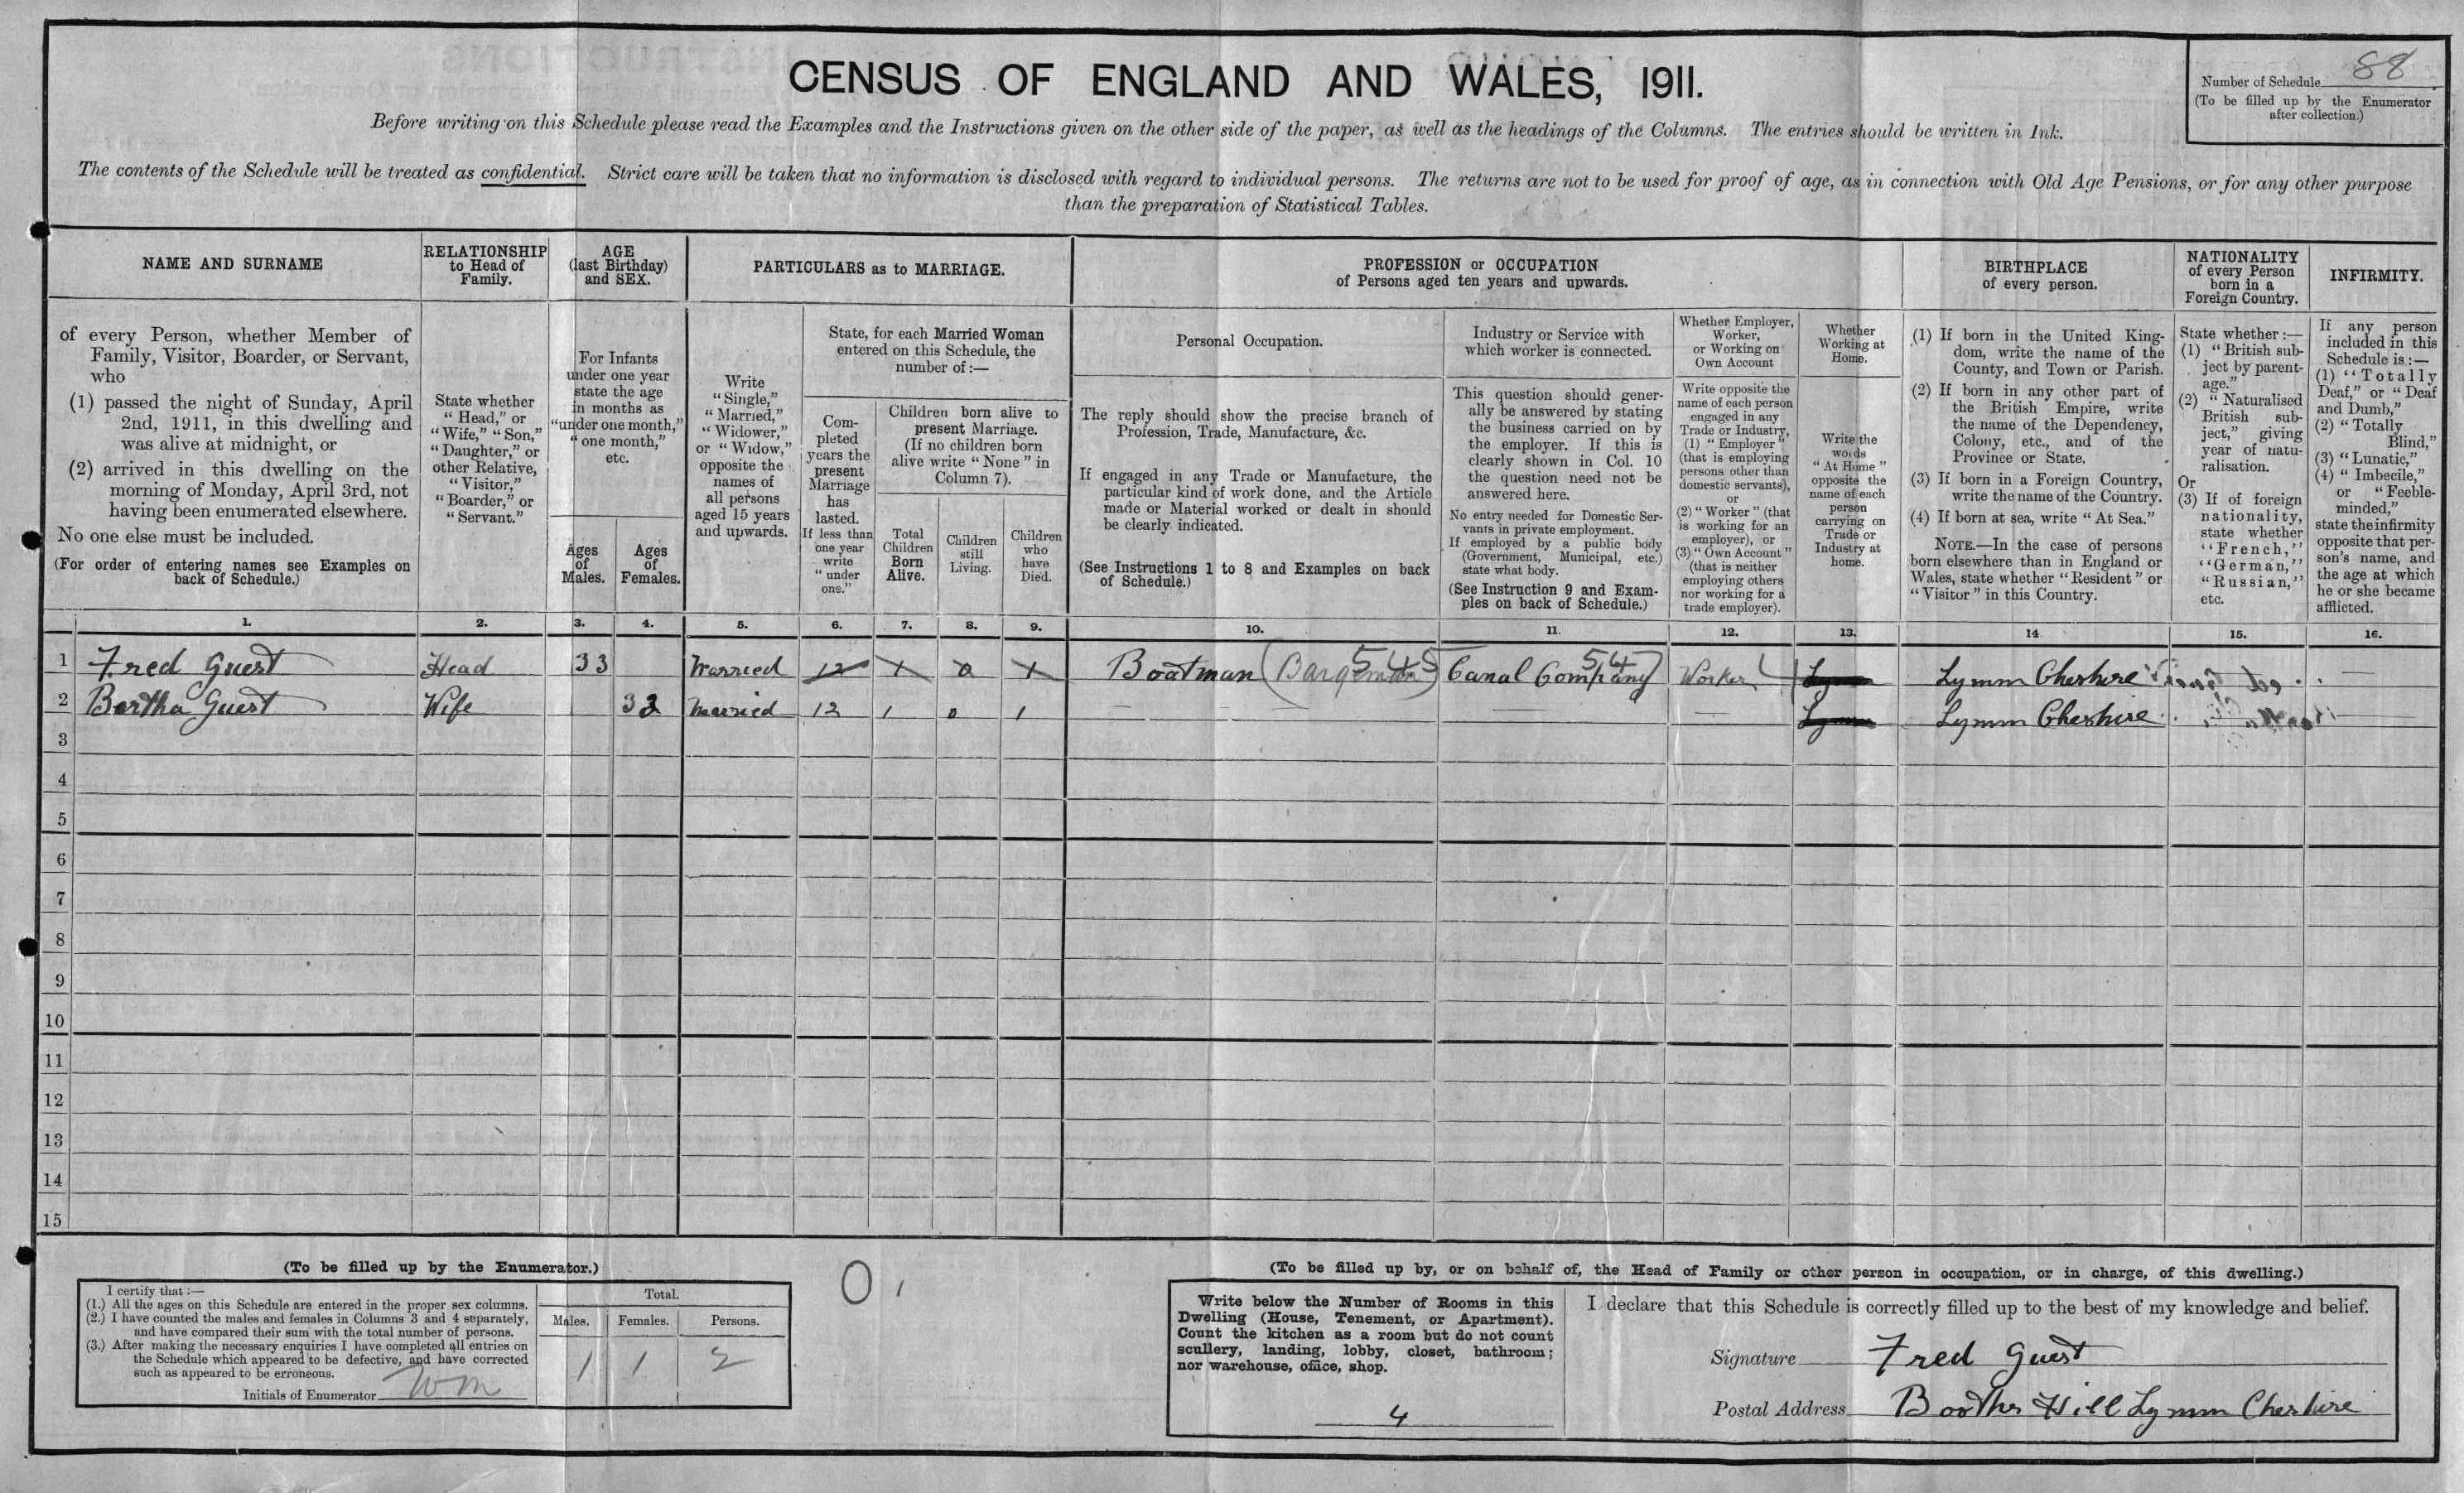 CENSUS OF ENGLAND AND WALES, 1911.
Number of Schedule 88
(To be filled up by the Enumerator
after collection.)
Before writing on this Schedule please read the Examples and the Instructions given on the other side of the paper, as well as the headings of the Columns. The entries should be written in Ink.
The contents of the Schedule will be treated as confidential. Strict care will be taken that no information is disclosed with regard to individual persons. The returns are not to be used for proof of age, as in connection with Old Age Pensions, or for any other purpose
than the preparation of Statistical Tables.
NAME AND SURNAME
of every Person, whether Member of
Family, Visitor, Boarder, or Servant,
who
(1) passed the night of Sunday, April
2nd, 1911, in this dwelling and
was alive at midnight, or
(2) arrived in this dwelling on the
morning of Monday, April 3rd, not
having been enumerated elsewhere.
No one else must be included.
(For order of entering names see Examples on
back of Schedule.)
RELATIONSHIP
to Head of
Family.
State whether
"Head," or
"Wife," "Son,"
"Daughter," or
other Relative,
"Visitor,"
"Boarder," or
"Servant."
AGE
(last Birthday)
and SEX.
For Infants
under one year
state the age
in months as
"under one month,"
"one month,"
etc.
Ages
of
Males.
Ages
of
Females.
PARTICULARS as to MARRIAGE.
Write
"Single,"
"Married,"
"Widower,"
or "Widow,"
opposite the
names of
all persons
aged 15 years
and upwards.
State, for each Married Woman
entered on this Schedule, the
number of :—
Com-
pleted
years the
present
Marriage
has
lasted.
If less than
one year
write
"under
one."
Children born alive to
present Marriage.
(If no children born
alive write "None" in
Column 7).
Total
Children
Born
Alive.
Children
still
Living.
Children
who
have
Died.
PROFESSION or OCCUPATION
of Persons aged ten years and upwards.
Personal Occupation.
The reply should show the precise branch of
Profession, Trade, Manufacture, &c.
If engaged in any Trade or Manufacture, the
particular kind of work done, and the Article
made or Material worked or dealt in should
be clearly indicated.
(See Instructions 1 to 8 and Examples on back
of Schedule.)
Industry or Service with
which worker is connected.
This question should gener-
ally be answered by stating
the business carried on by
the employer. If this is
clearly shown in Col. 10
the question need not be
answered here.
No entry needed for Domestic Ser-
vants in private employment.
If employed by a public body
(Government, Municipal, etc.)
state what body.
(See Instruction 9 and Exam-
ples on back of Schedule.)
Whether Employer,
Worker,
or Working on
Own Account
Write opposite the
name of each person
engaged in any
Trade or Industry,
(1) "Employer"
(that is employing
persons other than
domestic servants),
or
(2) "Worker" (that
is working for an
employer), or
(3) "Own Account"
(that is neither
employing others
nor working for a
trade employer).
Whether
Working at
Home.
Write the
words
"At Home"
opposite the
name of each
person
carrying on
Trade or
Industry at
home.
BIRTHPLACE
of every person.
(1) If born in the United King-
dom, write the name of the
County, and Town or Parish.
(2) If born in any other part of
the British Empire, write
the name of the Dependency,
Colony, etc., and of the
Province or State.
(3) If born in a Foreign Country,
write the name of the Country.
(4) If born at sea, write "At Sea."
NOTE.—In the case of persons
born elsewhere than in England or
Wales, state whether "Resident" or
"Visitor" in this Country.
NATIONALITY
of every Person
born in a
Foreign Country.
State whether :—
(1) "British sub-
ject by parent-
age."
(2) "Naturalised
British sub-
ject," giving
year of natu-
ralisation.
Or
(3) If of foreign
nationality,
state whether
"French,"
"German,"
"Russian,"
etc.
INFIRMITY.
If any person
included in this
Schedule is :—
(1) "Totally
Deaf," or "Deaf
and Dumb,"
(2) "Totally
Blind,"
(3) "Lunatic,"
(4) "Imbecile,"
or "Feeble-
minded,"
state the infirmity
opposite that per-
son's name, and
the age at which
he or she became
afflicted.
1. 2. 3. 4. 5. 6. 7. 8. 9. 10. 11. 12. 13. 14 15. 16.
1 Fred Guest Head 33 Married 12 1 0 1 Boatman (Bargeman) 545 Canal Company 54 Worker Lymm Lymm Cheshire —
2 Bertha Guest Wife 33 Married 12 1 0 1 — — — Lymm Lymm Cheshire —
3
4
5
6
7
8
9
10
11
12
13
14
15
(To be filled up by the Enumerator.)
I certify that :—
(1.) All the ages on this Schedule are entered in the proper sex columns.
(2.) I have counted the males and females in Columns 3 and 4 separately,
and have compared their sum with the total number of persons.
(3.) After making the necessary enquiries I have completed all entries on
the Schedule which appeared to be defective, and have corrected
such as appeared to be erroneous.
Initials of Enumerator
Total.
Males. Females. Persons.
1 1 2
0 1
(To be filled up by, or on behalf of, the Head of Family or other person in occupation, or in charge, of this dwelling.)
Write below the Number of Rooms in this
Dwelling (House, Tenement, or Apartment).
Count the kitchen as a room but do not count
scullery, landing, lobby, closet, bathroom;
nor warehouse, office, shop.
4
I declare that this Schedule is correctly filled up to the best of my knowledge and belief.
Signature Fred Guest
Postal Address Booths Hill Lymm Cheshire